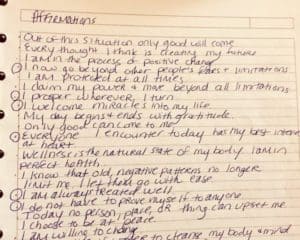 Affirmations
Out of this situation only good will come
Every thought I think is creating my future
I am in the process of positive change
I now go beyond other people's fears + limitations
I am protected at all times
I claim my power & move beyond all limitations
I prosper wherever I turn
I welcome miracles into my life
My day begins & ends with gratitude.
Only good can come to me
Everyone I encounter today has my best interest
at heart
Wellness is the natural state of my body. I am in
perfect health
I know that old, negative patterns no longer
limit me. I let them go with ease
I am always treated well
I do not have to prove myself to anyone
Today no person, place, or thing can upset me.
I choose to be at peace
I am willing to change
to cleanse my body & mind